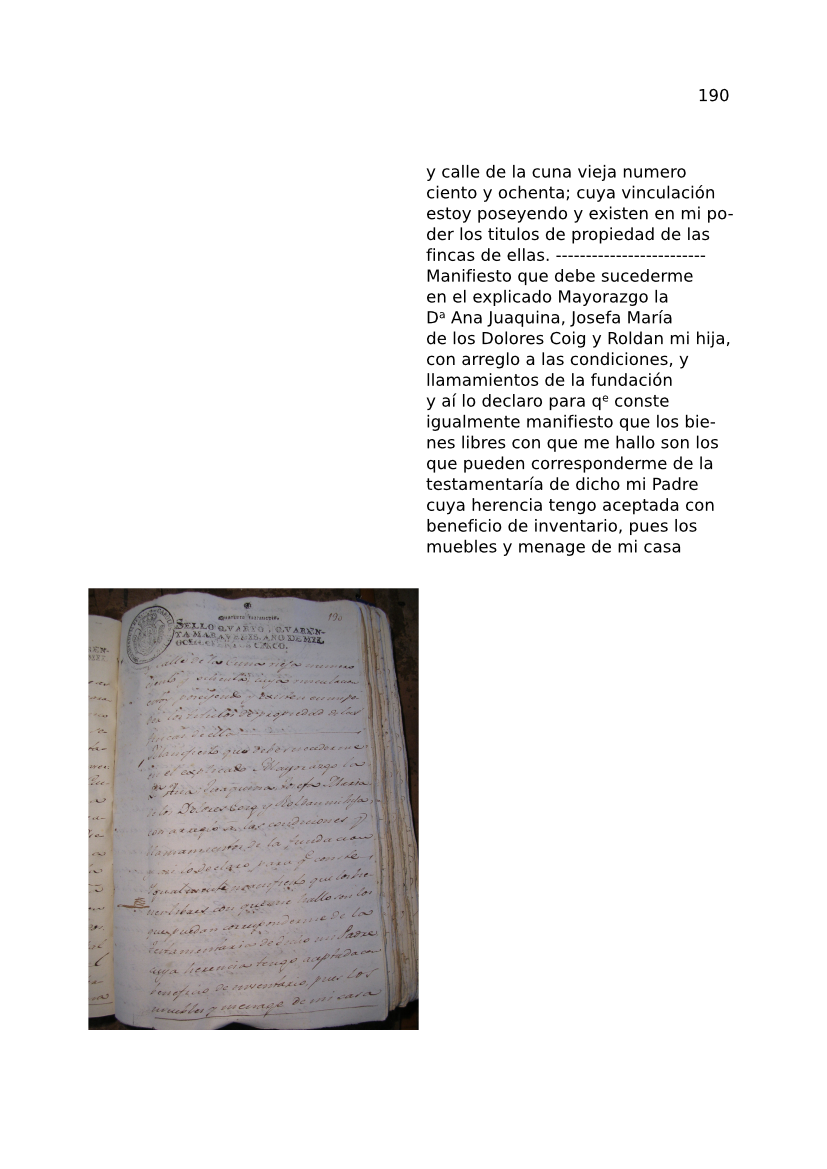 190
y calle de la cuna vieja numero
ciento y ochenta; cuya vinculación
estoy poseyendo y existen en mi po-
der los titulos de propiedad de las
fincas de ellas. -------------------------
Manifiesto que debe sucederme
en el explicado Mayorazgo la
Dª Ana Juaquina, Josefa María
de los Dolores Coig y Roldan mi hija,
con arreglo a las condiciones, y
llamamientos de la fundación
y aí lo declaro para qᵉ conste
igualmente manifiesto que los bie-
nes libres con que me hallo son los
que pueden corresponderme de la
testamentaría de dicho mi Padre
cuya herencia tengo aceptada con
beneficio de inventario, pues los
muebles y menage de mi casa
190
SELLO QVARTO, QVAREN-
TA MARAVEDIS, AÑO DE MIL
calle de la Cuna vieja numero
fincas de ella
Manifiesto que debe sucederme
en el explicado Mayorazgo la
Dª Ana Juaquina Josefa Maria
de los Dolores Coig y Roldan mi hija
con arreglo a las condiciones y
llamamientos de la fundacion
y asi lo declaro para qᵉ conste
igualmente manifiesto que los bie-
nes libres con que me hallo son los
que puedan corresponderme de la
testamentaria de dicho mi Padre
cuya herencia tengo aceptada con
beneficio de inventario, pues los
muebles y menage de mi casa